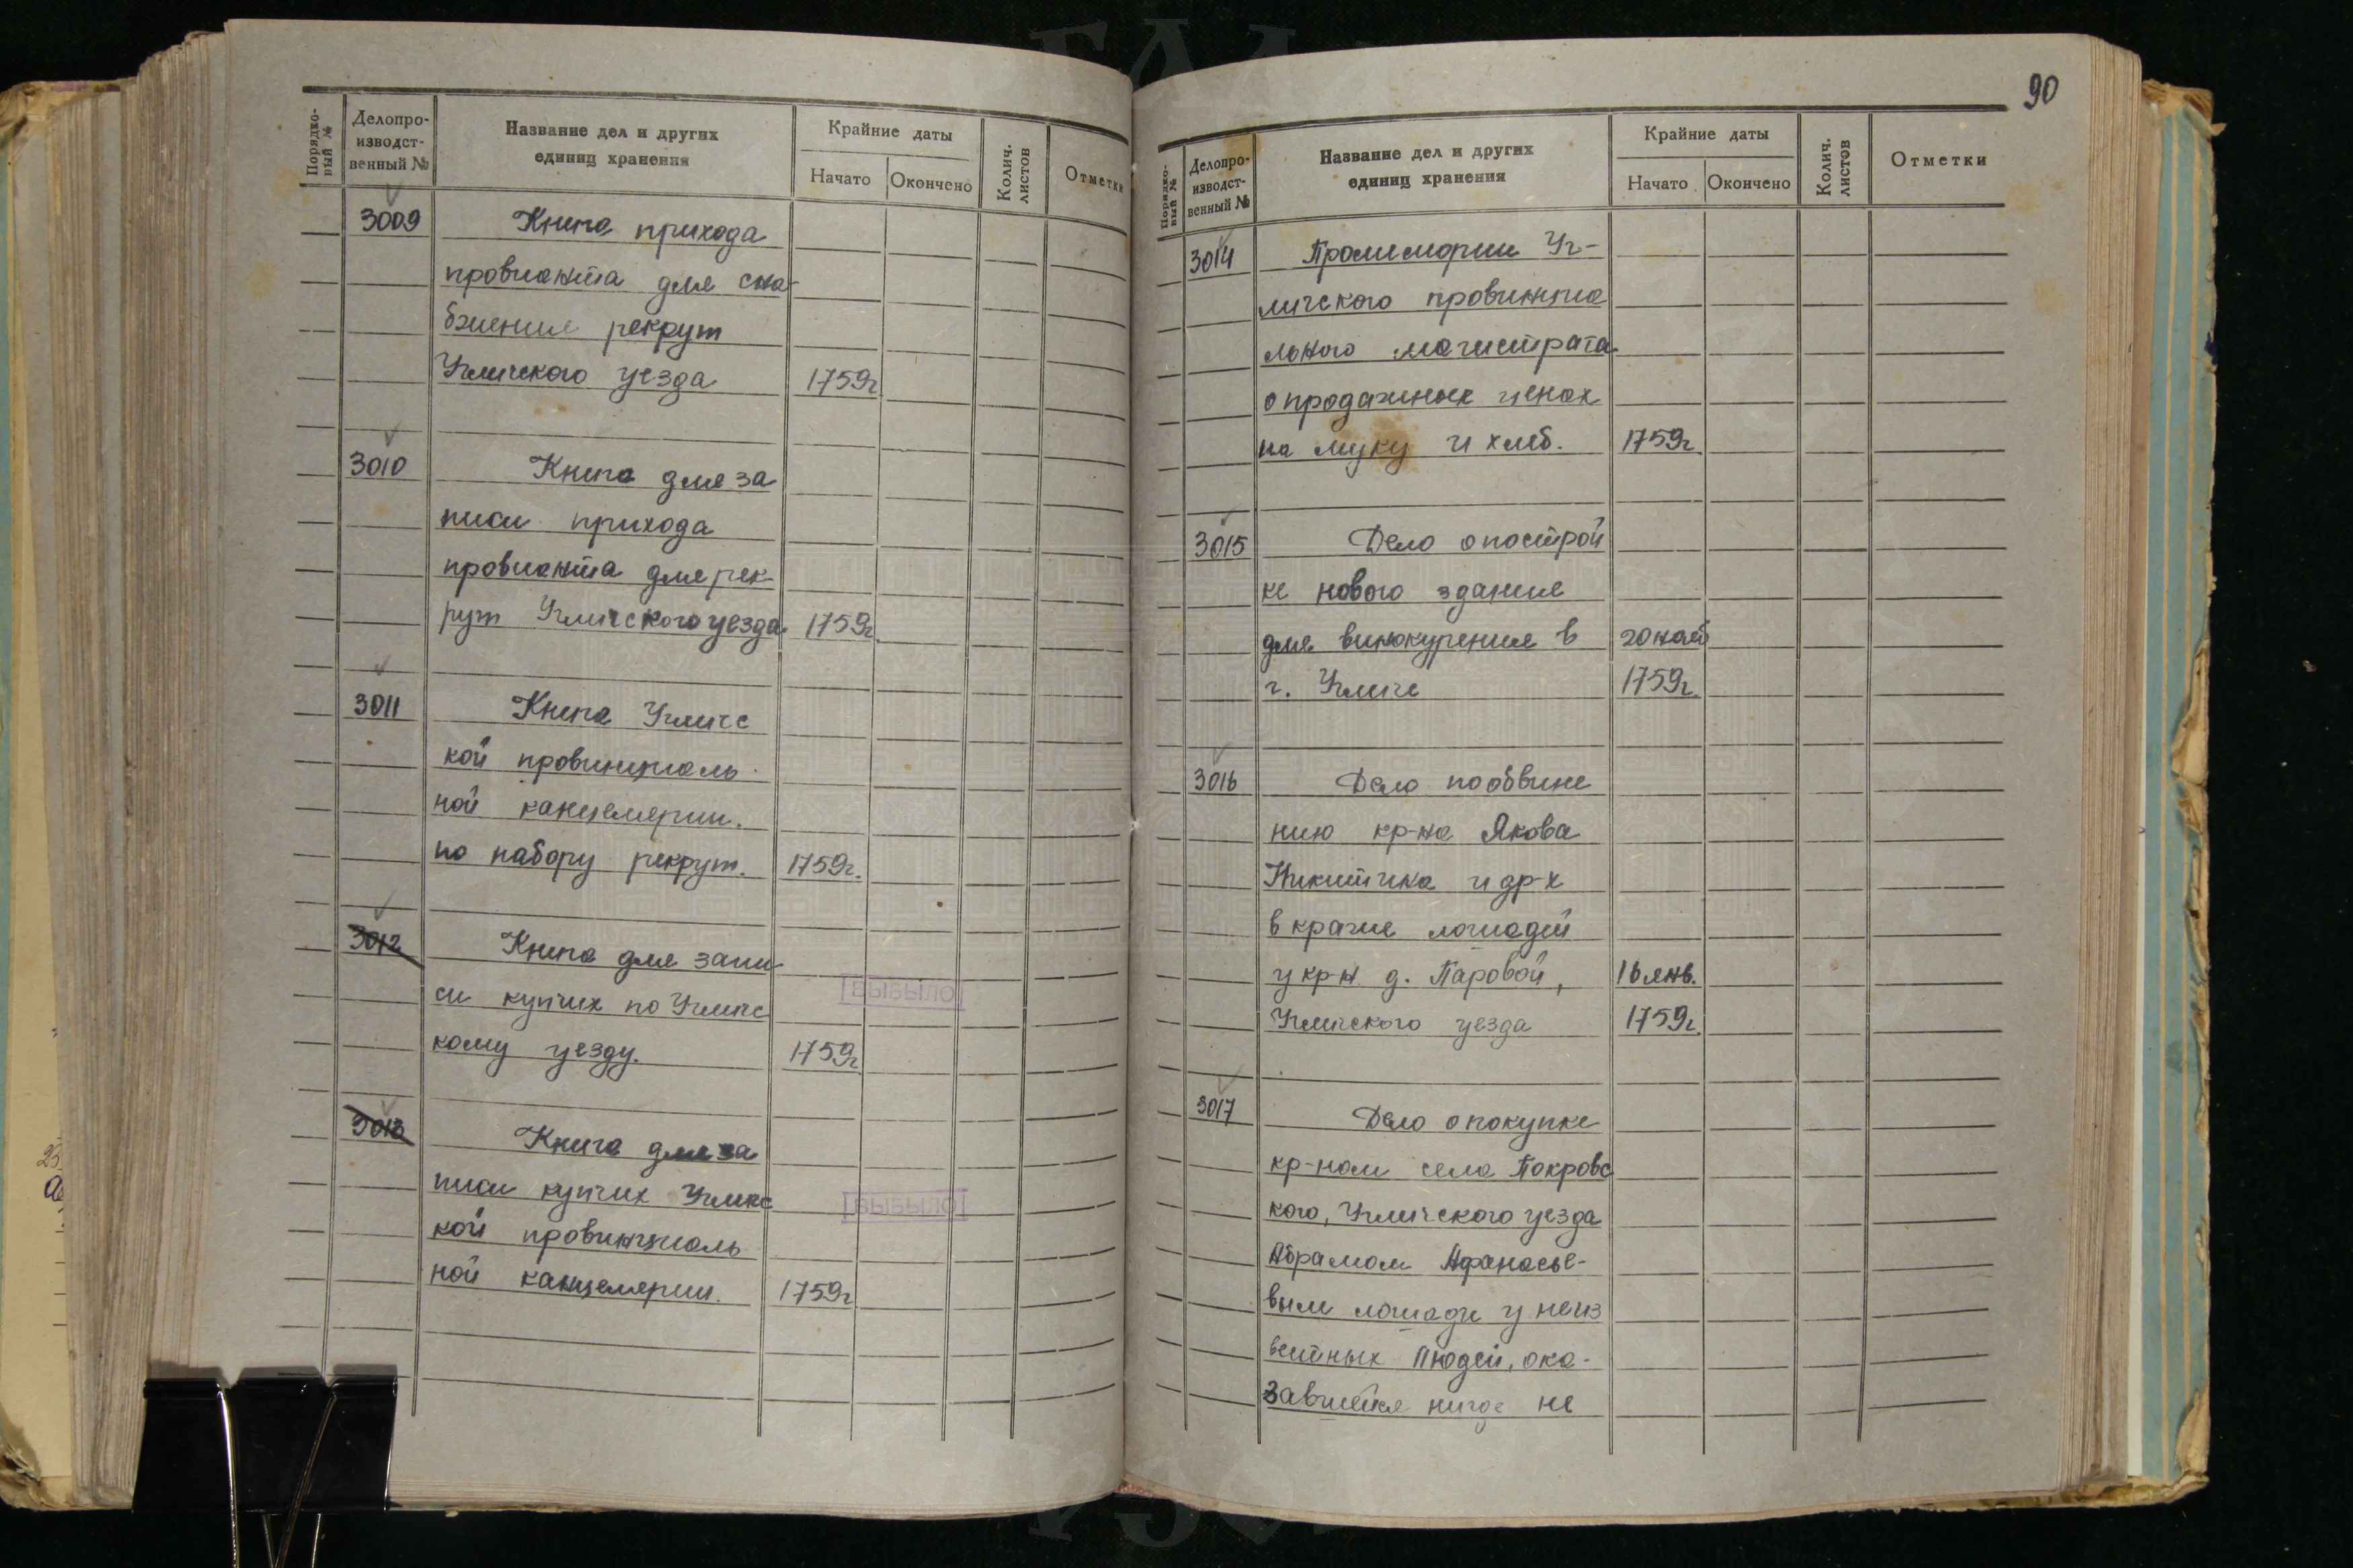 90
Порядко-
вый №
Делопро-
изводст-
венный №
Название дел и других
единиц хранения
Крайние даты
Начато
Окончено
Колич.
листов
Отметки
3009 Книга прихода
провианта для сна-
бжения рекрут
Угличского уезда 1759г
3010 Книга для за
писи прихода
провианта для рек-
рут Угличского уезда 1759г.
3011 Книга Угличс
кой провинциаль
ной канцелярии.
по набору рекрут. 1759г.
3012 Книга для запи
си купчих по Угличс
кому уезду. 1759г
ВЫБЫЛО
3013 Книга для за
писи купчих Угличс
кой провинциаль
ной канцелярии. 1759г
ВЫБЫЛО
Порядко-
вый №
Делопро-
изводст-
венный №
Название дел и других
единиц хранения
Крайние даты
Начато
Окончено
Колич.
листов
Отметки
3014 Промемории Уг-
личского провинциа
льного магистрата
о продажных ценах
на муку и хлеб. 1759г.
3015 Дело о построй
ке нового здания
для винокурения в 20 нояб
г. Угличе 1759г.
3016 Дело по обвине
нию кр-на Якова
Никитина и др-х
в краже лошадей
у кр-н д. Паровой, 16 янв.
Угличского уезда 1759г.
3017 Дело о покупке
кр-ном села Покровс
кого, Угличского уезда
Абрамом Афанасье-
вым лошади у неиз
вестных людей, ока-
завшейся нигде не